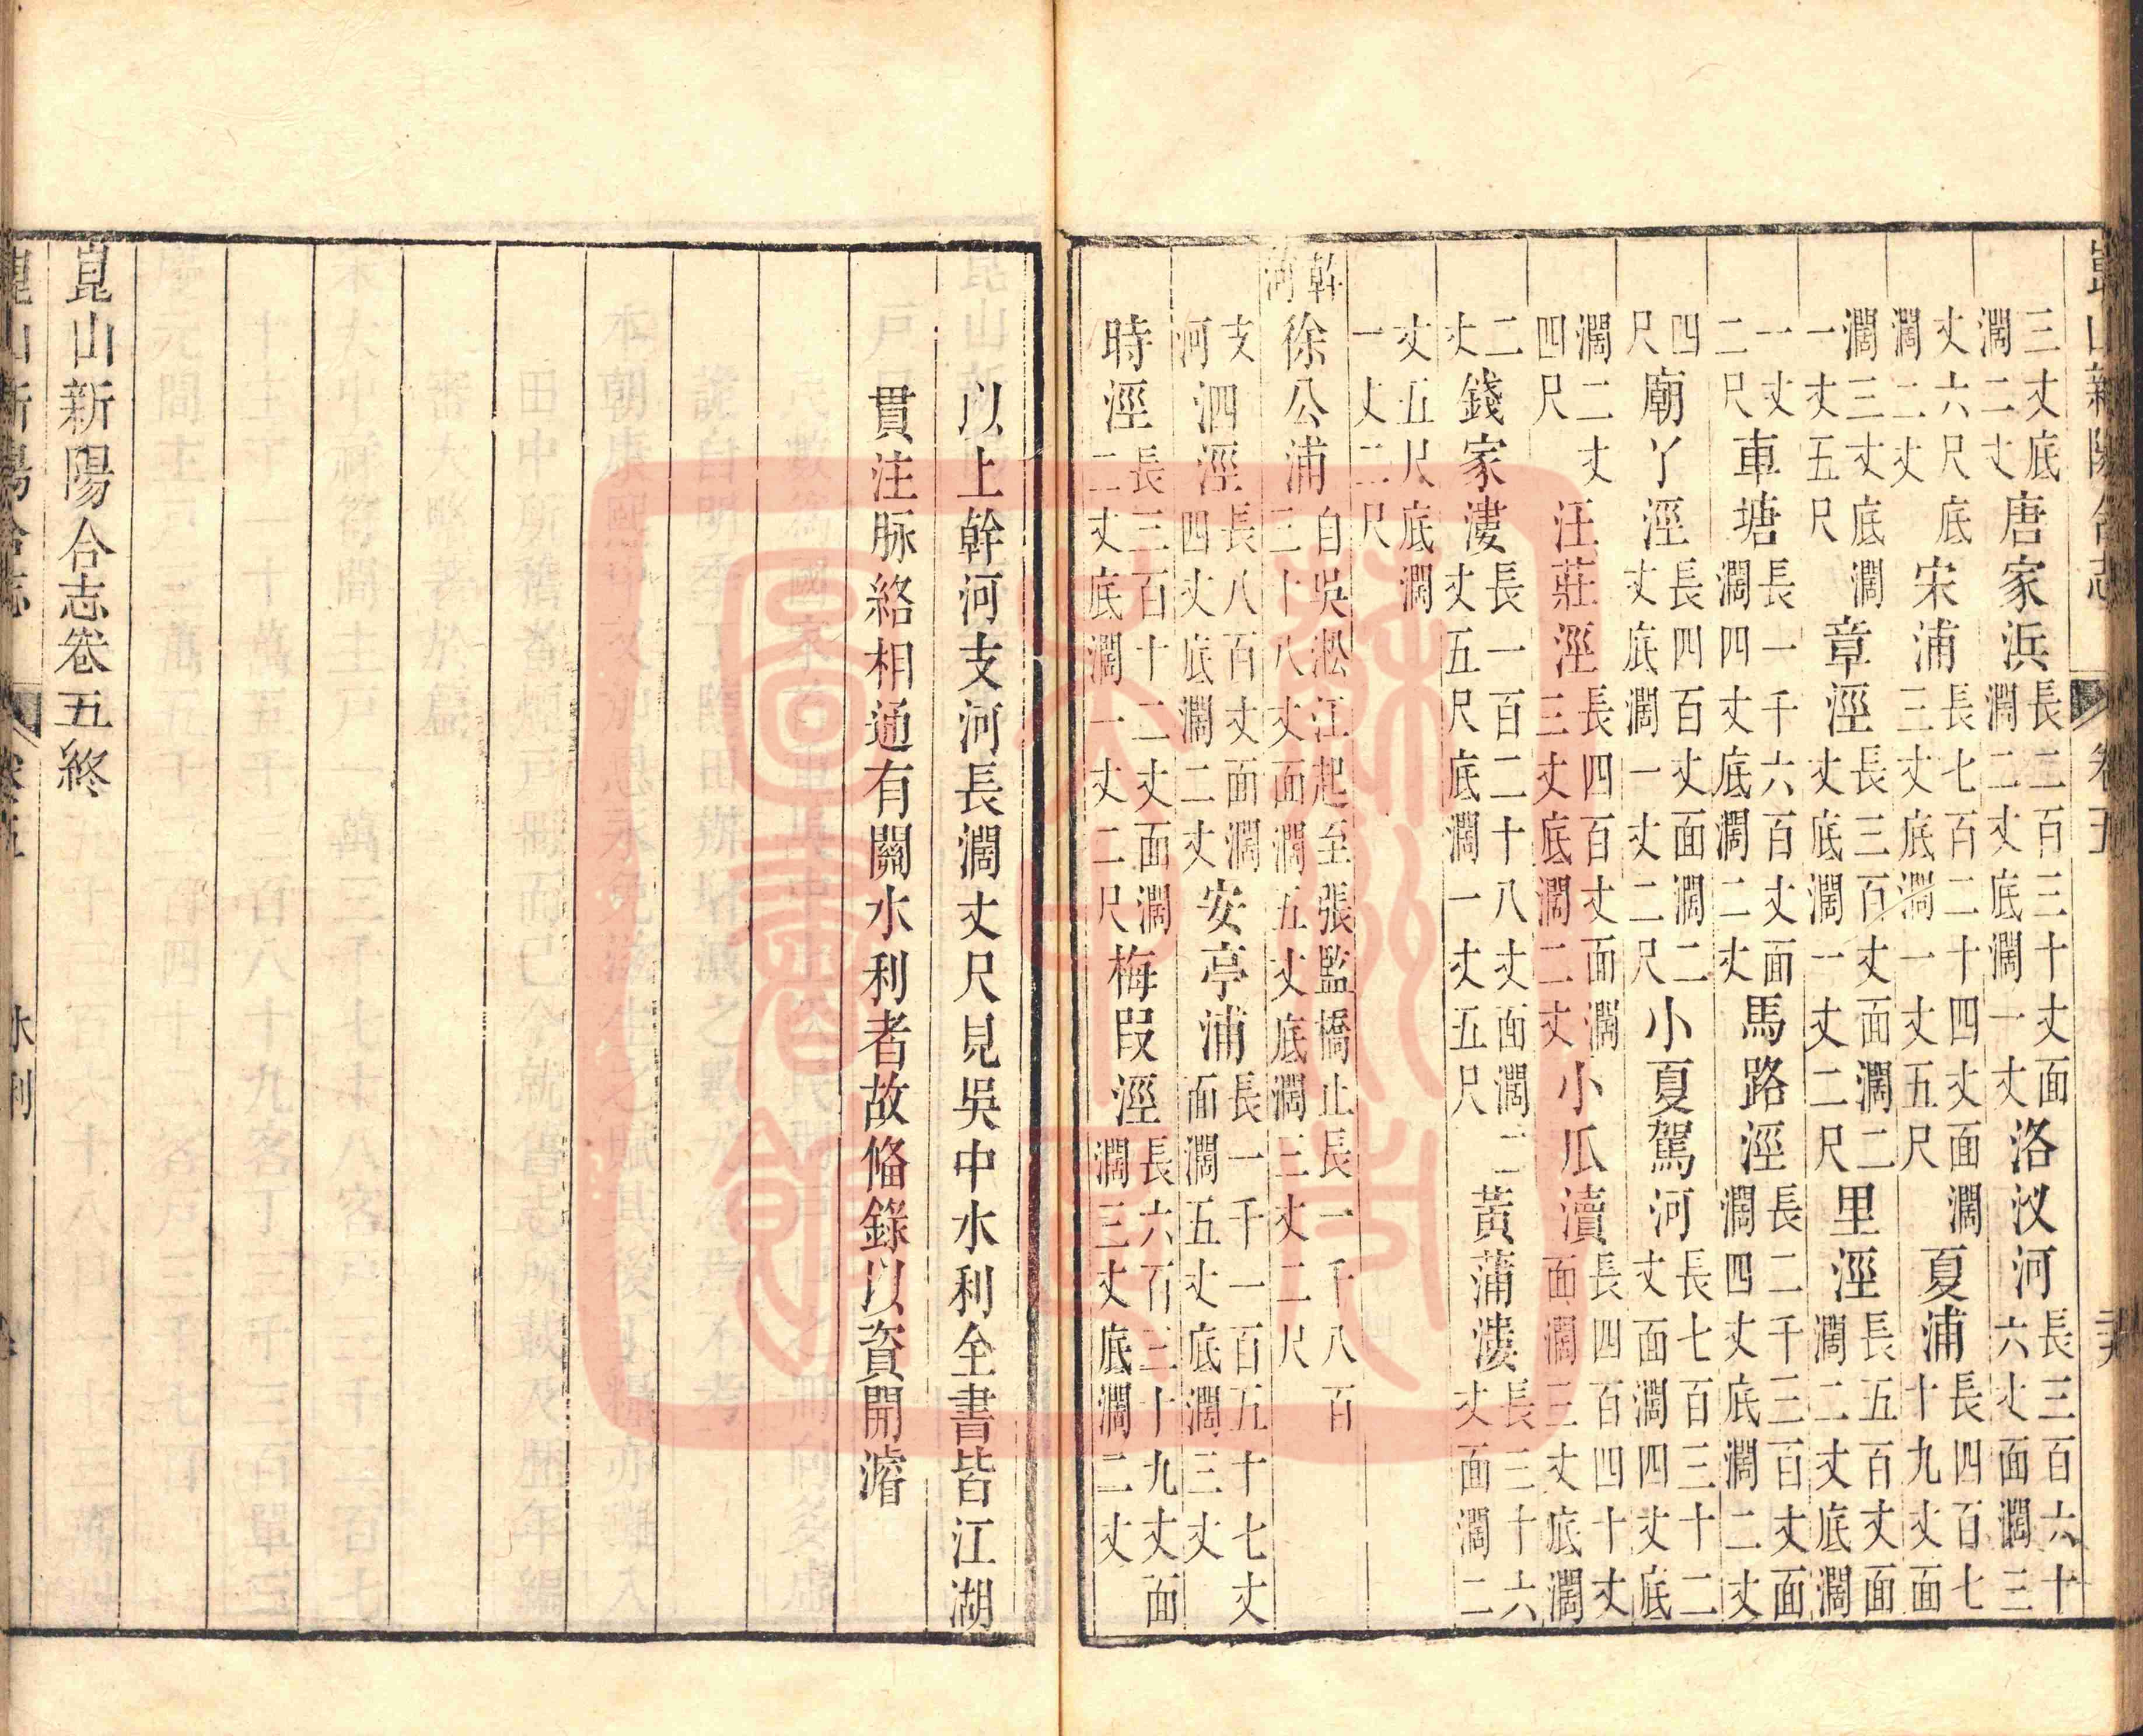 崑山新陽合志　卷五
三丈底濶二丈唐家浜長二百三十丈面濶二丈底濶一丈洛汊河長三百六十六丈面濶三
丈六尺底濶二丈宋浦長七百二十四丈面濶三丈底濶一丈五尺夏浦長四百七十九丈面
濶三丈底濶一丈五尺章涇長三百丈面濶二丈底濶一丈二尺里涇長五百丈面濶二丈底濶
一丈二尺車塘長一千六百丈面濶四丈底濶二丈馬路涇長二千三百丈面濶四丈底濶二丈
四尺廟丫涇長四百丈面濶二丈底濶一丈二尺小夏駕河長七百三十二丈面濶四丈底
濶二丈四尺汪莊涇長四百丈面濶三丈底濶二丈小瓜瀆長四百四十丈面濶三丈底濶
二丈錢家漊長一百二十八丈面濶二丈五尺底濶一丈五尺黃蒲漊長三十六丈面濶二
丈五尺底濶一丈二尺
幹河徐公浦自吳淞江起至張監橋止長一千八百三十八丈面濶五丈底濶三丈二尺
支河泗涇長八百丈面濶四丈底濶二丈安亭浦長一千一百五十七丈面濶五丈底濶三丈
時涇長三百十二丈面濶二丈底濶一丈二尺梅段涇長六百三十九丈面濶三丈底濶二丈
以上幹河支河長濶丈尺見吳中水利全書皆江湖
貫注脉絡相通有關水利者故偹錄以資開濬
崑山新陽合志卷五終
崑山新陽合志　卷五　水利